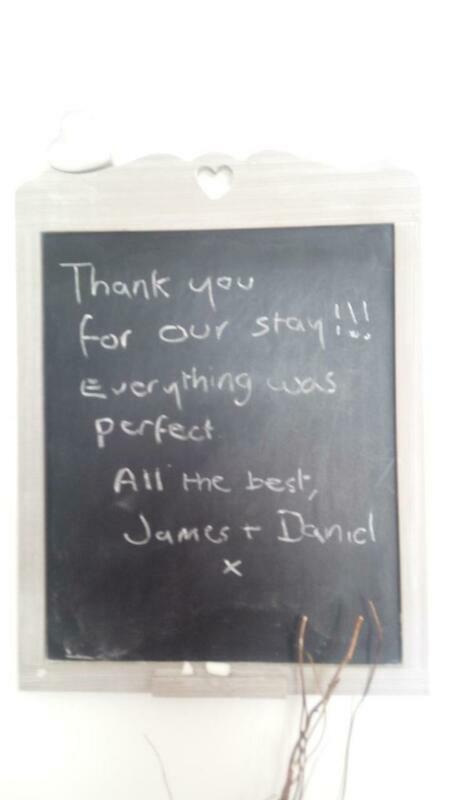 Thank you
for our stay!!!
Everything was
perfect.
All the best,
James + Daniel
x